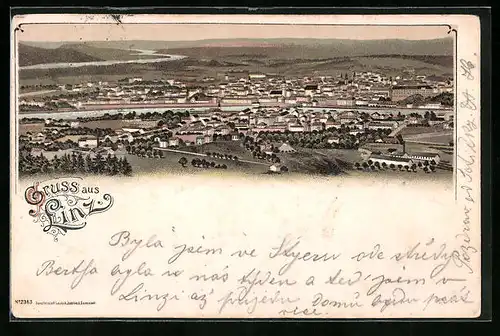 Gruss aus
Linz
Byla jsem ve Štyeru ode středy
Bertha byla u nás týden a teď jsem v
Linzi až přijedu domů budu psát
více.
Pozdrav od
No 2363